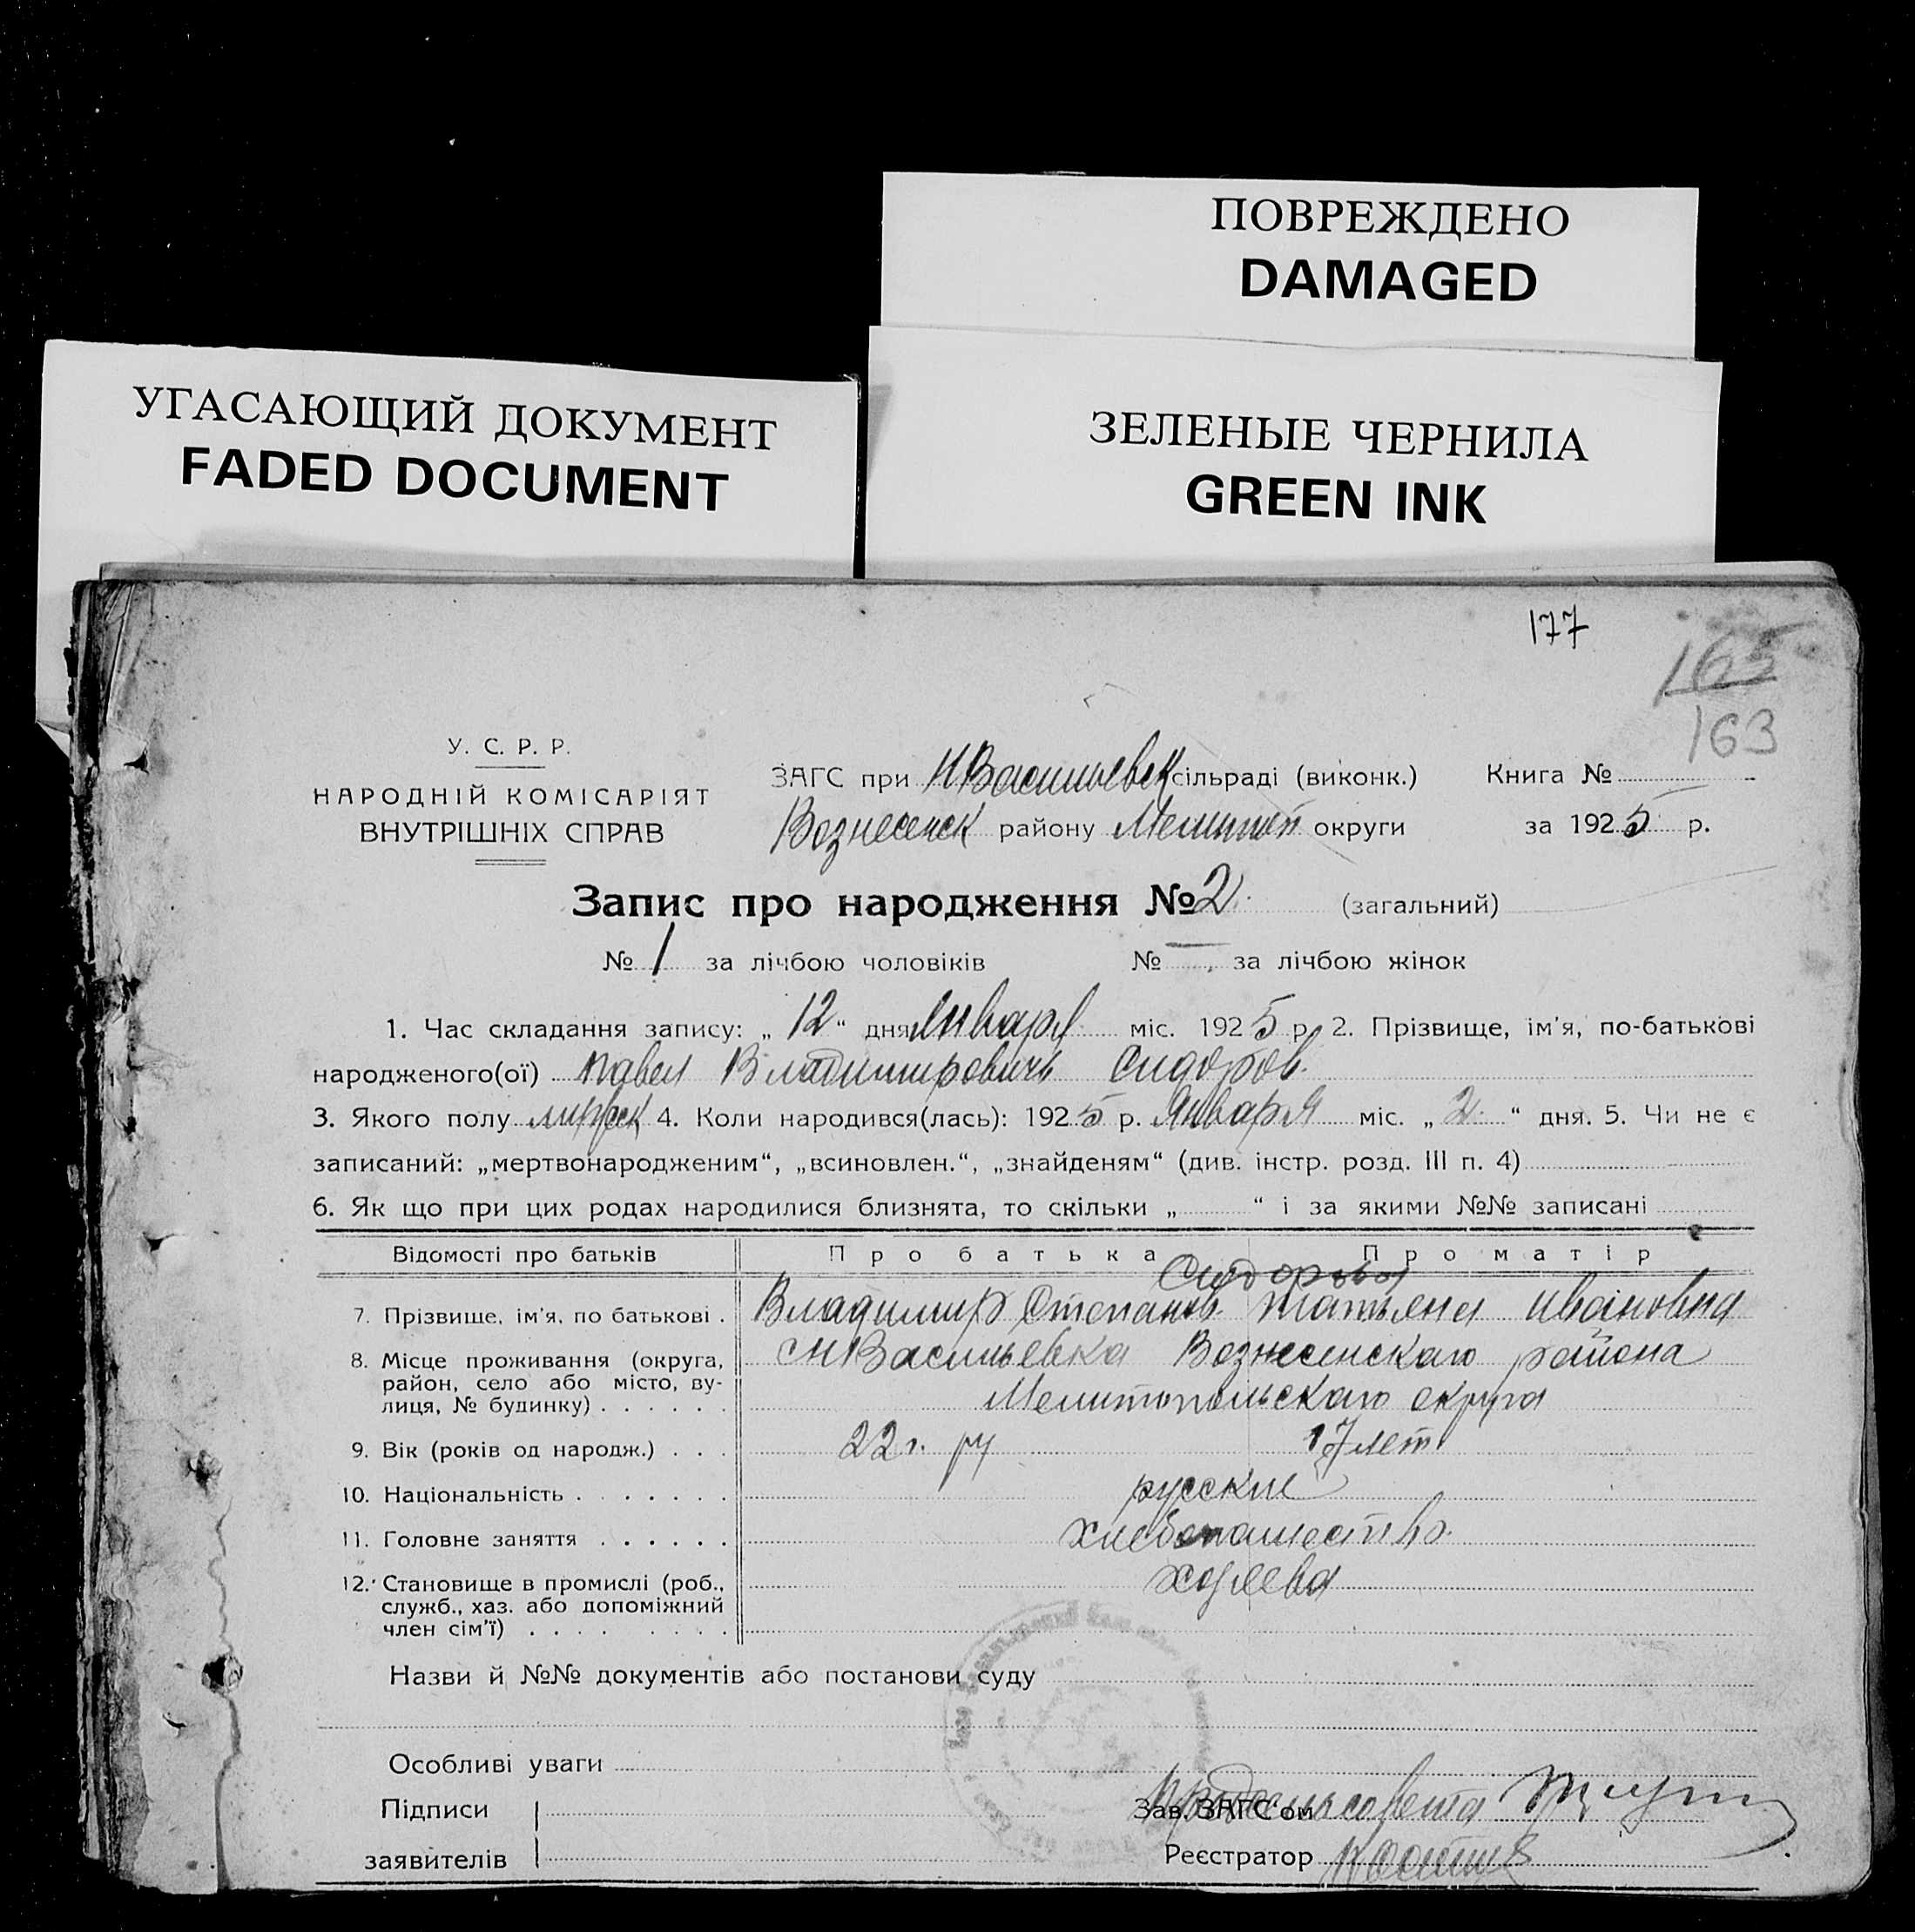 ПОВРЕЖДЕНО
DAMAGED
УГАСАЮЩИЙ ДОКУМЕНТ
FADED DOCUMENT
ЗЕЛЕНЫЕ ЧЕРНИЛА
GREEN INK
177
165
163
У. С. Р. Р.
НАРОДНІЙ КОМІСАРІЯТ
ВНУТРІШНІХ СПРАВ
ЗАГС при Н Васильевск сільраді (виконк.) Книга №
Вознесенск району Мелитоп округи за 1925 р.
Запис про народження № 2 (загальний)
№ 1 за лічбою чоловіків № — за лічбою жінок
1. Час складання запису: „ 12 “ дня Января міс. 1925 р. 2. Прізвище, ім'я, по-батькові
народженого(ої) Павел Владимировичь Сидоров.
3. Якого полу мужск 4. Коли народився(лась): 1925 р. Января міс. „ 2 “ дня. 5. Чи не є
записаний: „мертвонародженим“, „всиновлен.“, „знайденям“ (див. інстр. розд. III п. 4)
6. Як що при цих родах народилися близнята, то скільки „ “ і за якими №№ записані
Відомості про батьків Про батька Про матір
Сидорова
7. Прізвище, ім'я, по батькові . Владимир Степанов. Татьяна Ивановна
8. Місце проживання (округа, район, село або місто, вулиця, № будинку) . . . . . . с Н Васильевка Вознесенскаго района
Мелитопольскаго округа
9. Вік (років од народж.) . . . 22 г. 17 лет
10. Національність . . . . . . . русские
11. Головне заняття . . . . . . хлебопашество.
12. Становище в промислі (роб., служб., хаз. або допоміжний член сім'ї) . . . . . . . . хозяева
Назви й №№ документів або постанови суду
Особливі уваги
Підписи
Зав. ЗАГС'ом сельсовета
заявителів
Реєстратор